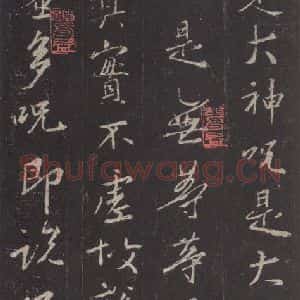 是大神咒是大
是無等等
真實不虛故說
多咒即說
Shufawang.CN